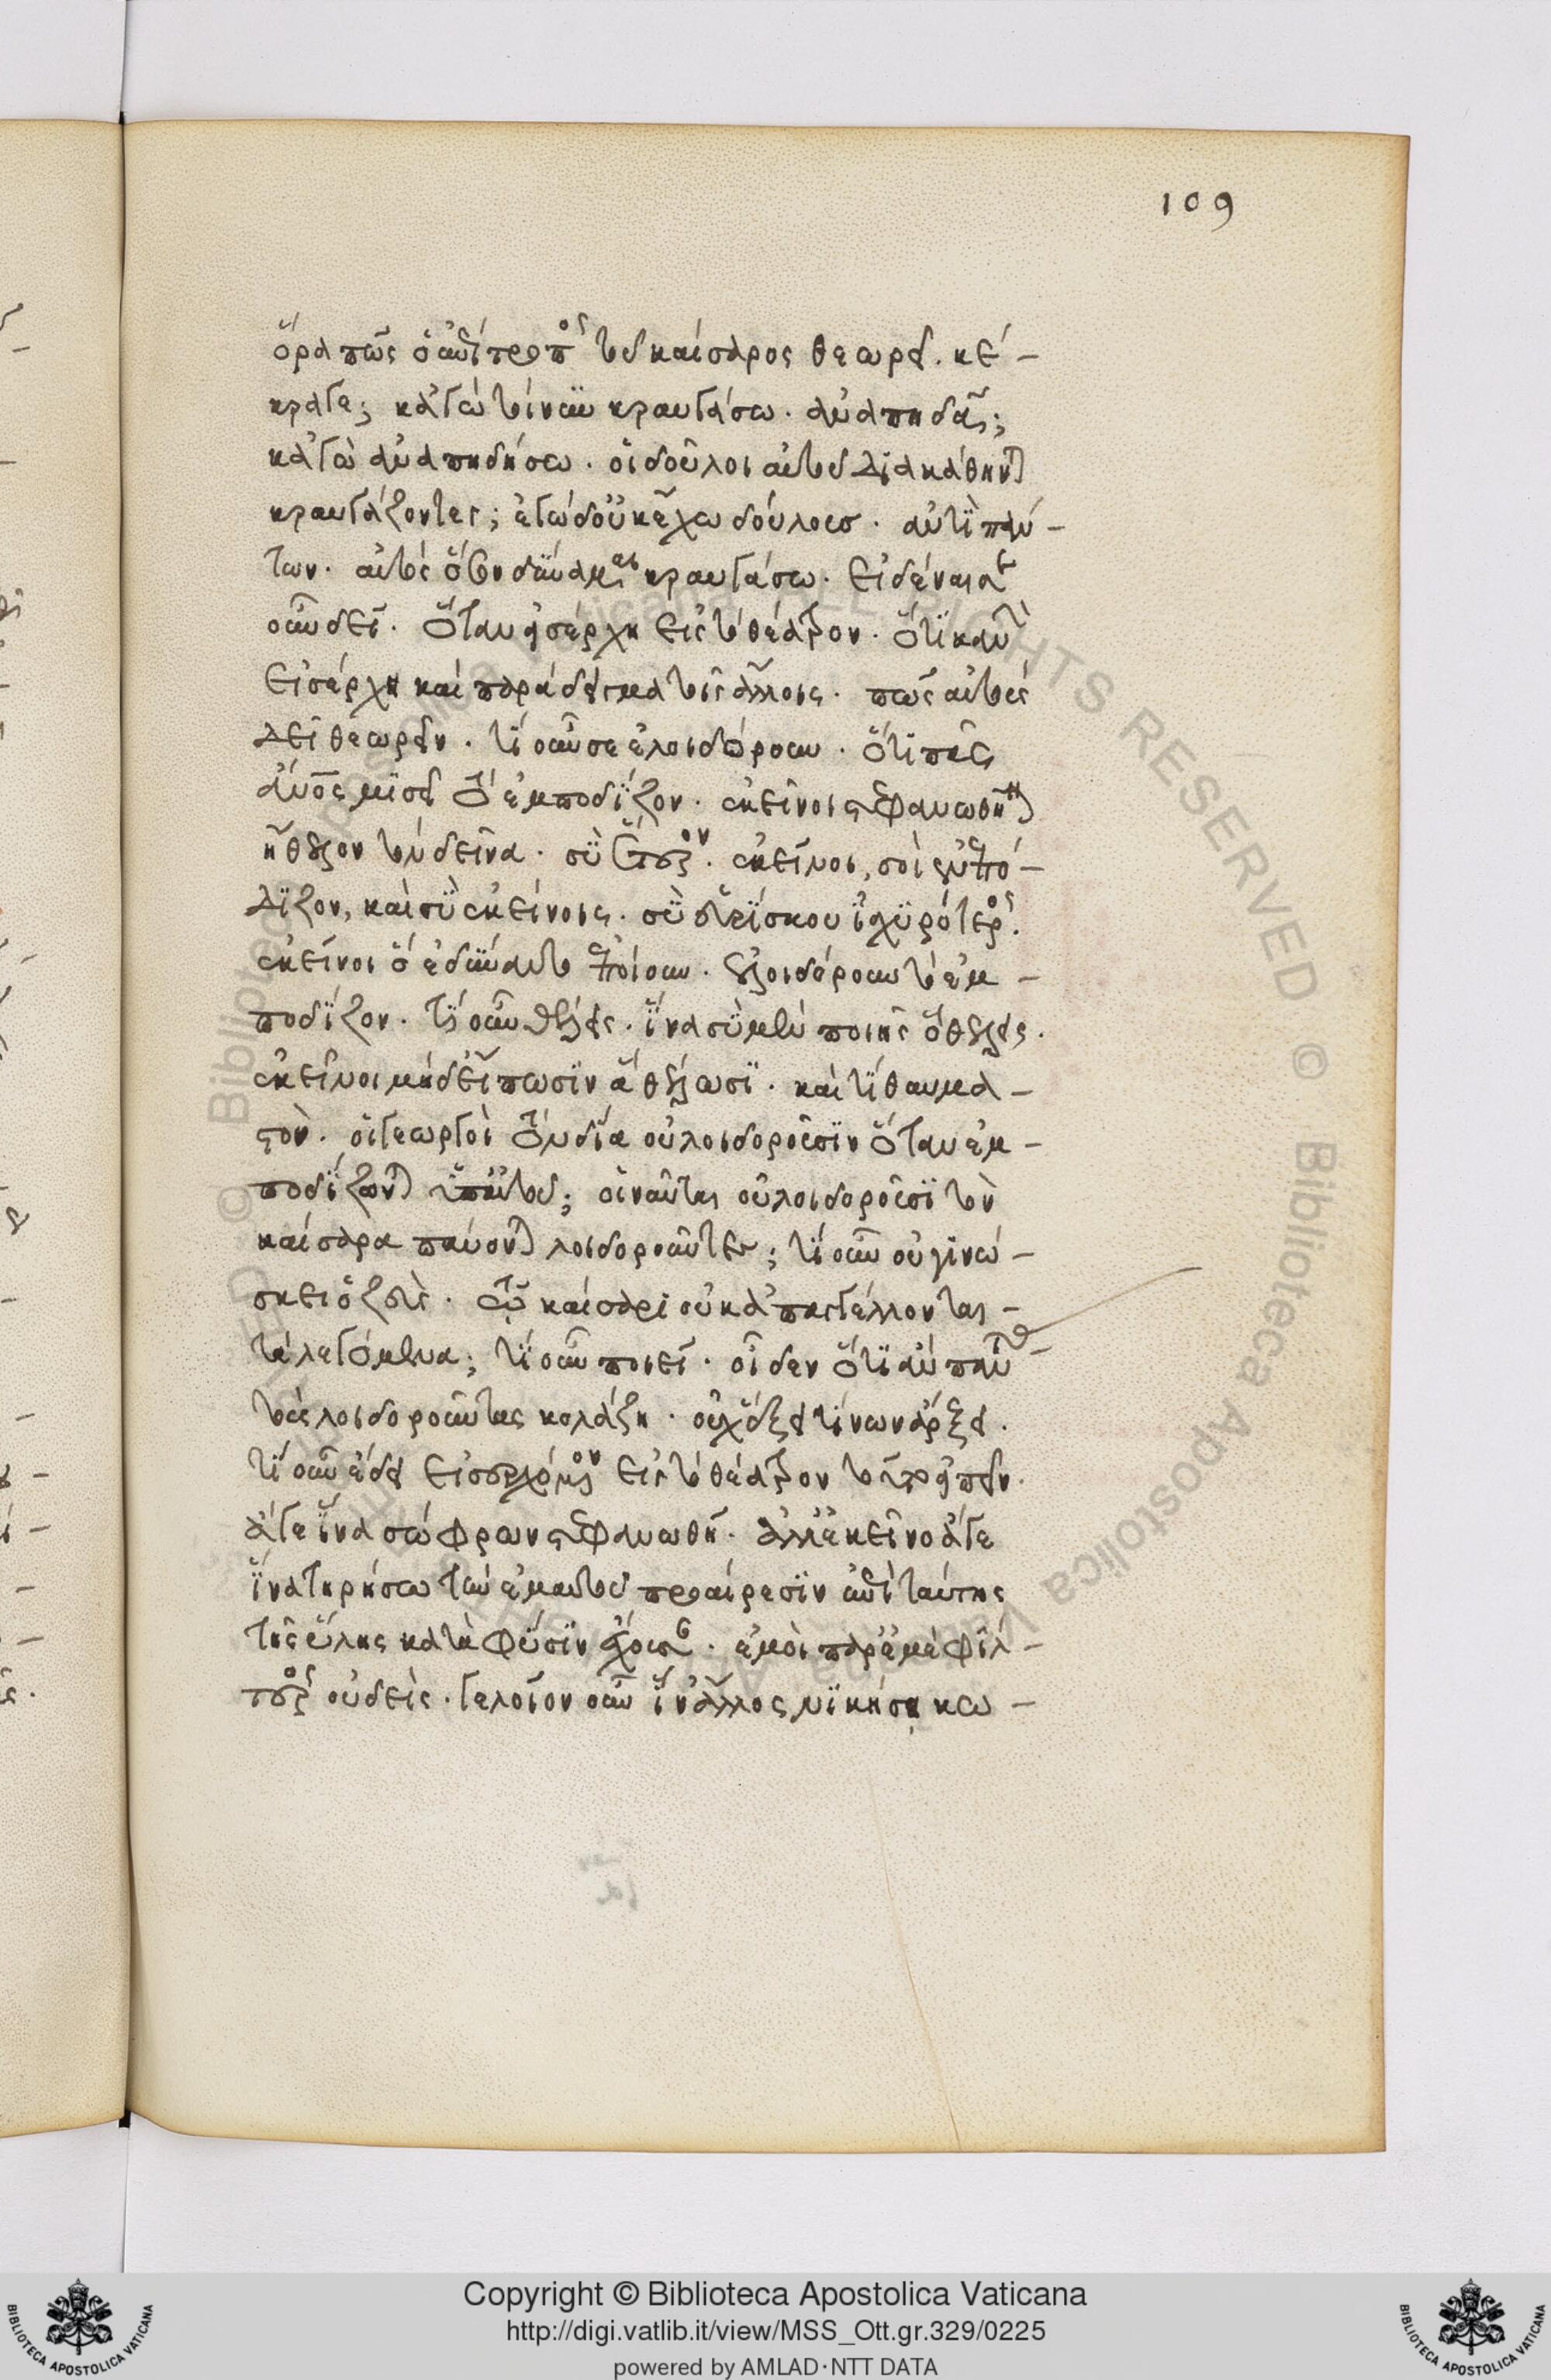 109
ὅρα πῶς ὁ ἐπίτροπος τοῦ καίσαρος θεωρεῖ. κέ-
κραγε; κἀγὼ τοίνυν κραυγάσω. ἀναπηδᾶ;
κἀγὼ ἀναπηδήσω. οἱ δοῦλοι αὐτοῦ διακάθηνται
κραυγάζοντες; ἐγὼ δ' οὐκ ἔχω δούλους. ἀντὶ πάν-
των. αὐτὸς ὅσον δύναμαι κραυγάσω. εἰδέναι σε
οὖν δεῖ. ὅταν εἰσέρχη εἰς τὸ θέατρον. ὅτι κανὼν
εἰσέρχη καὶ παράδειγμα τοῖς ἄλλοις. πῶς αὐτοὺς
δεῖ θεωρεῖν. τί οὖν σε ἐλοιδόρουν. ὅτι πᾶς
ἄνος μισεῖ τὸ ἐμποδίζον. ἐκεῖνοι στεφανωθῆναι
ἤθελον τὸν δεῖνα. σὺ ἕτερον. ἐκεῖνοι, σοὶ ἐνεπό-
διζον, καὶ σὺ ἐκείνοις. σὺ εὑρίσκου ἰσχυρότερος.
ἐκεῖνοι ὃ ἐδύναντο ἐποίουν. ἐλοιδόρουν τὸ ἐμ-
ποδίζον. τί οὖν θέλεις. ἵνα σὺ μὲν ποιῆς ὃ θέλεις.
ἐκεῖνοι μηδ' εἴπωσιν ἃ θέλωσι. καὶ τί θαυμα-
στόν. οἱ γεωργοὶ τὸν δία οὐ λοιδοροῦσιν ὅταν ἐμ-
ποδίζωνται ὑπ' αὐτοῦ; οἱ ναῦται οὐ λοιδοροῦσι τὸν
καίσαρα παύονται λοιδοροῦντες; τί οὖν οὐ γινώ-
σκει ὁ ζεύς. τῷ καίσαρι οὐκ ἀπαγγέλλονται
τὰ λεγόμενα; τί οὖν ποιεῖ. οἶδεν ὅτι ἂν πάντας
τοὺς λοιδοροῦντας κολάζη. οὐχ ἕξει τίνων ἄρξει.
τί οὖν ἔδει εἰσερχόμενον εἰς τὸ θέατρον τοῦτο εἰπεῖν.
ἄγε ἵνα σώφρων στεφανωθῆ. ἀλλ' ἐκεῖνο ἄγε
ἵνα τηρήσω τὴν ἐμαυτοῦ προαίρεσιν ἐπὶ ταύτης
τῆς ὕλης κατὰ φύσιν ἔχουσαν. ἐμοὶ παρ' ἐμὲ φίλ-
τερος οὐδείς. γελοῖον οὖν ἵν' ἄλλος νικήσῃ κω-
Copyright © Biblioteca Apostolica Vaticana
http://digi.vatlib.it/view/MSS_Ott.gr.329/0225
powered by AMLAD·NTT DATA